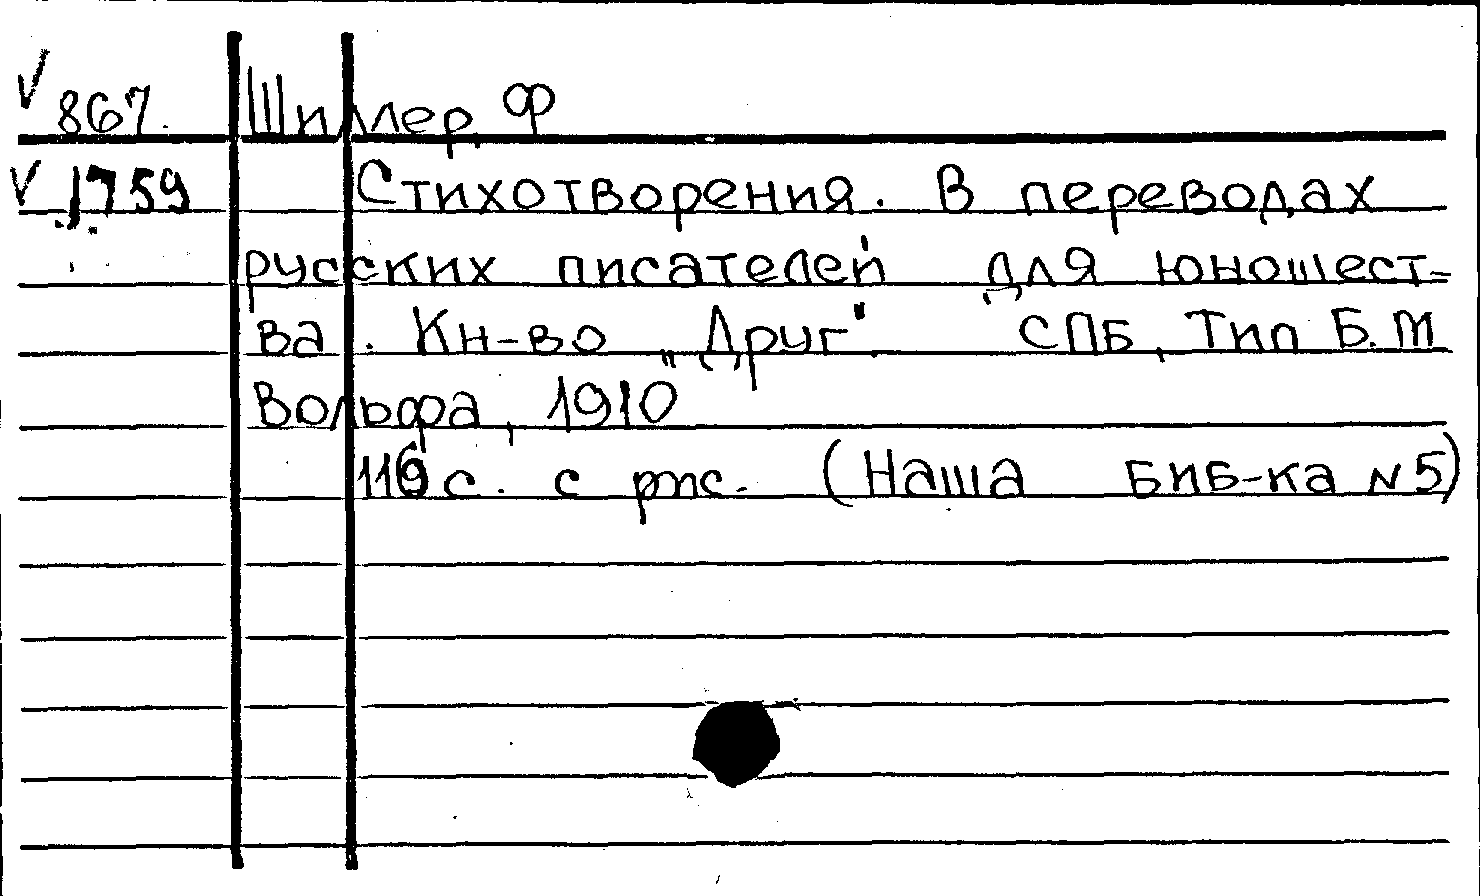 V 867. Шиллер, Ф
V 1759 Стихотворения. В переводах
русских писателей для юношест-
ва. Кн-во „Друг". СПБ, Тип Б.М
Вольфа, 1910
116 с. с рис. (Наша биб-ка N 5)